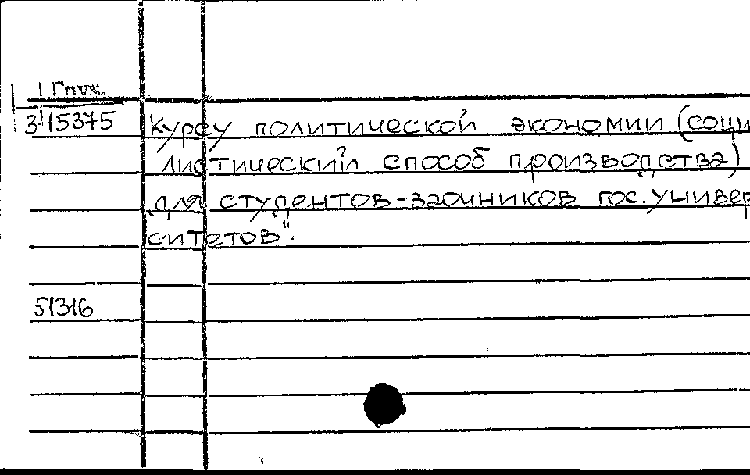 3-15375
курсу политической экономии (соци
листический способ производства)
для студентов-заочников гос. универ
ситетов".
51316